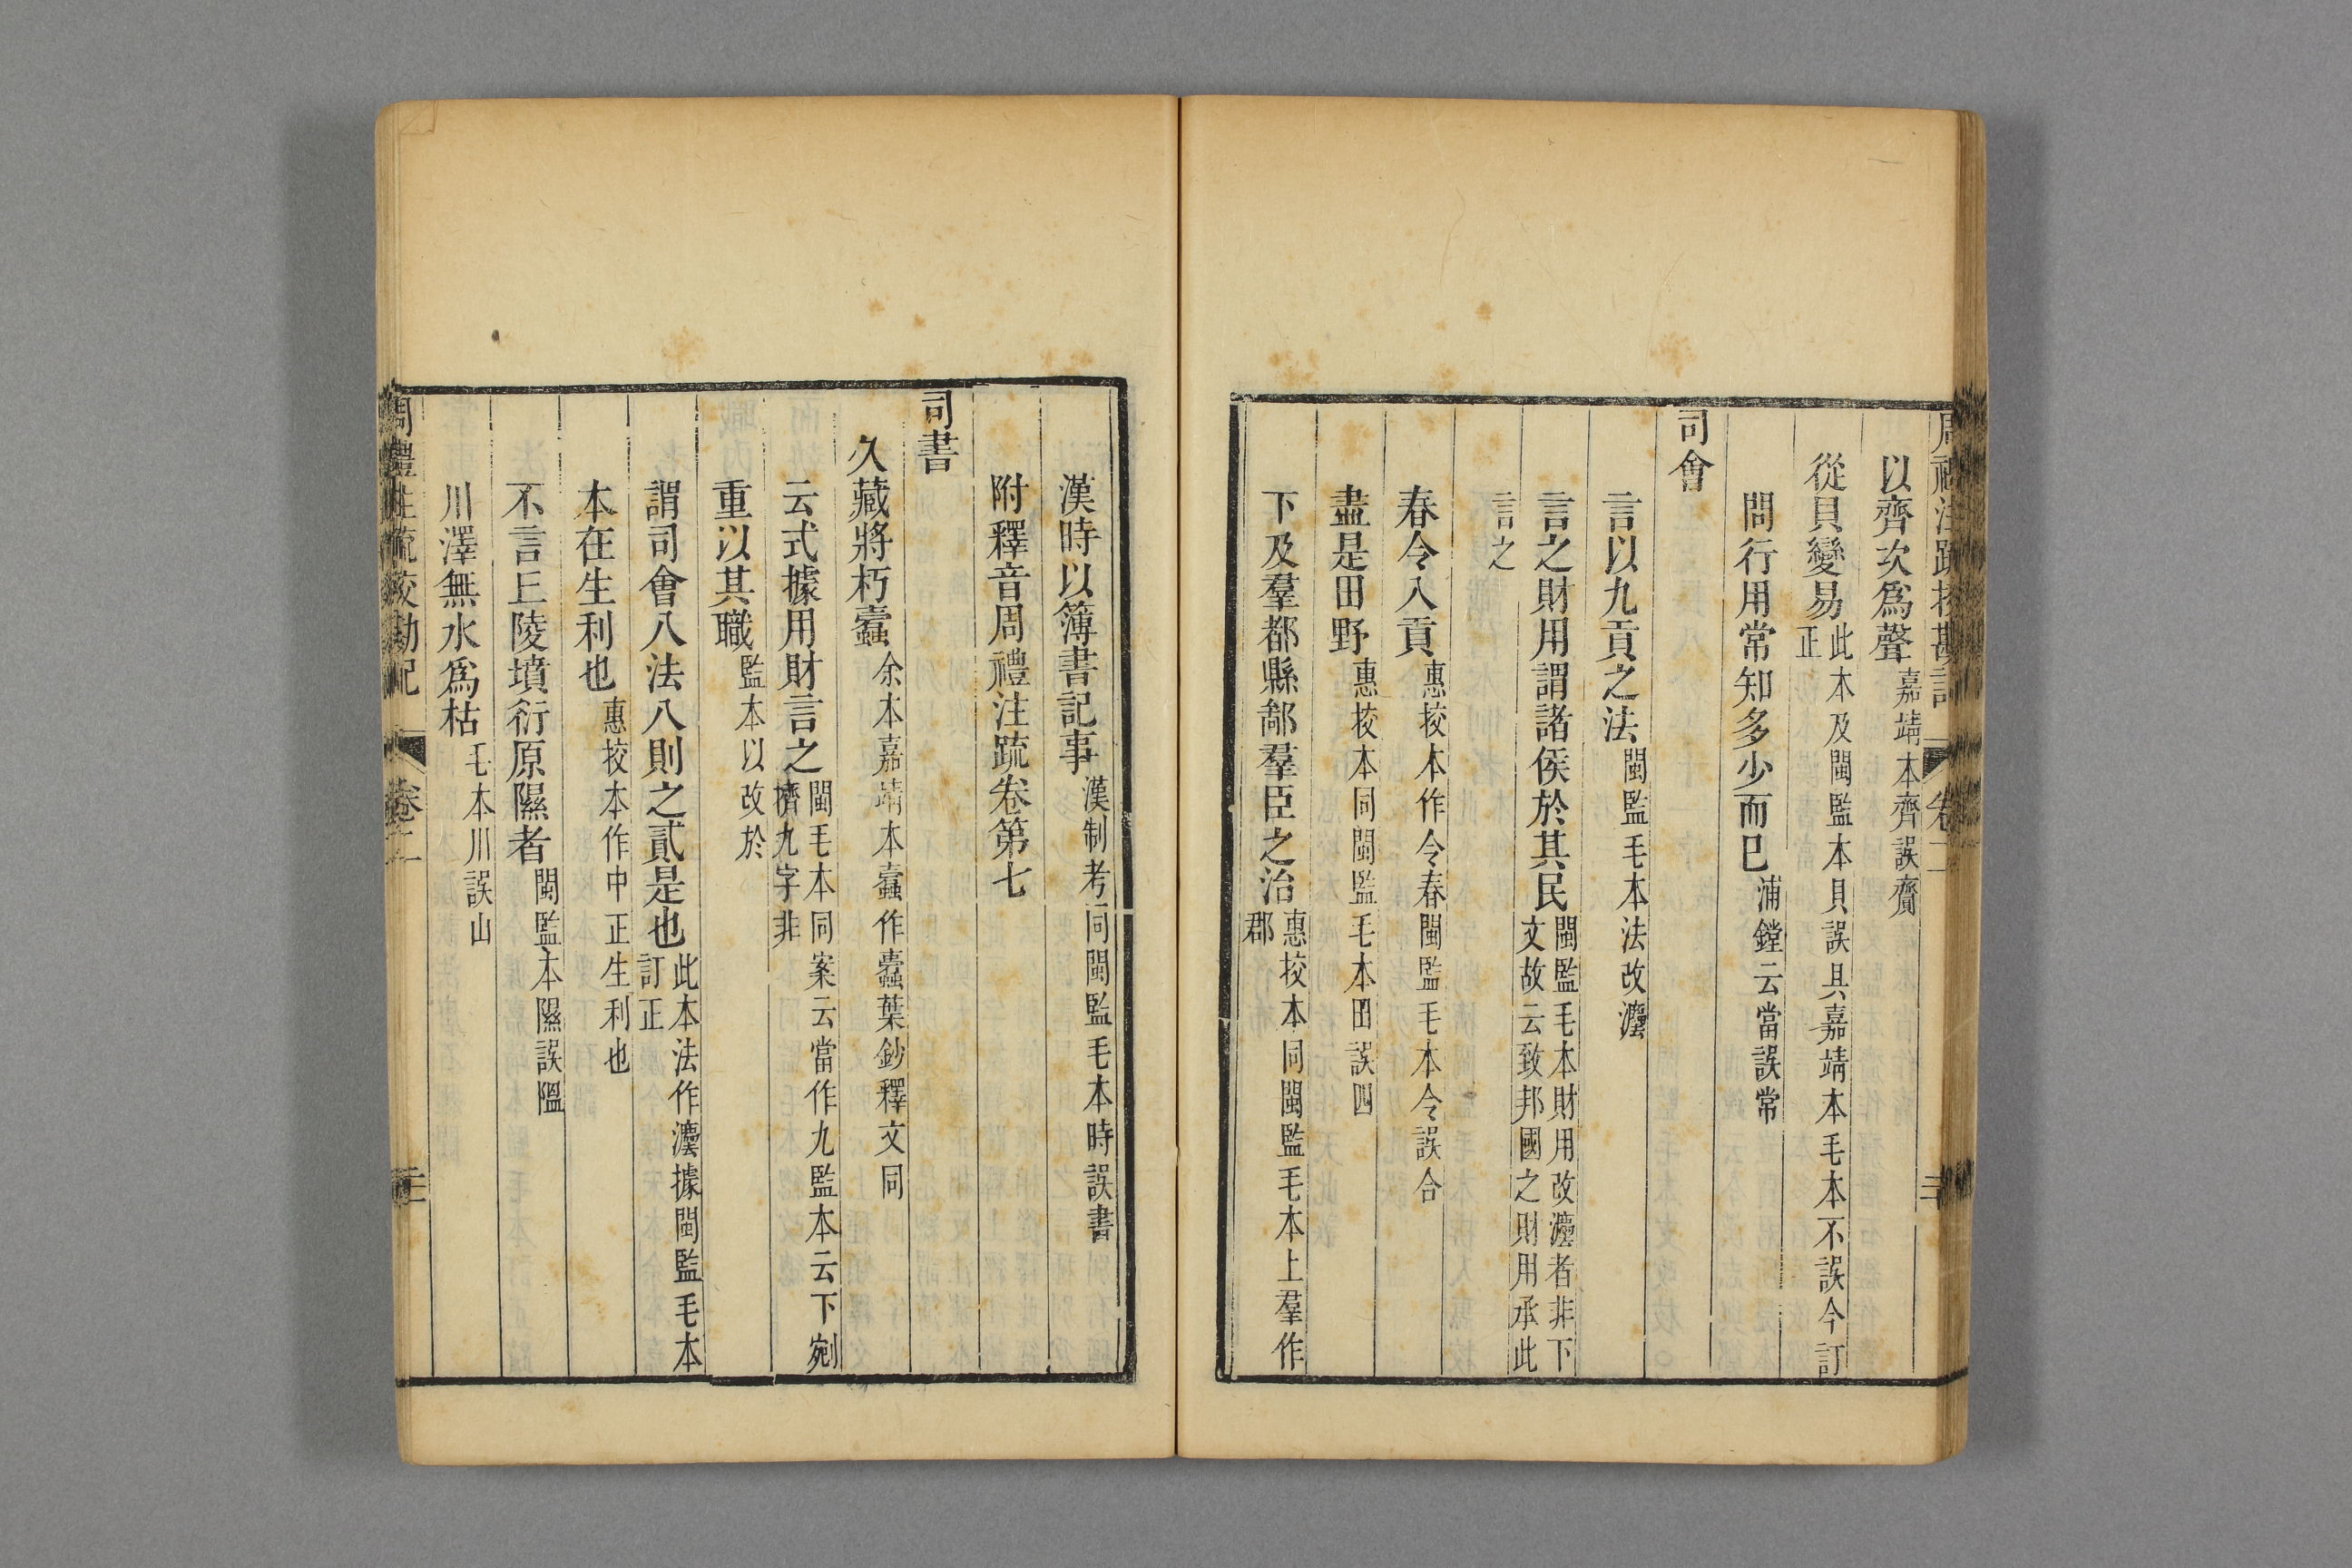 周禮注疏挍勘記 卷二
以齊次爲聲嘉靖本齊誤齎
從貝變易此本及閩監本貝誤具嘉靖本毛本不誤今訂正
問行用常知多少而巳浦鏜云當誤常
司會
言以九貢之法閩監毛本法改灋
言之財用謂諸侯於其民閩監毛本財用改灋者非下文故云致邦國之財用承此
言之
春令入貢惠挍本作令春閩監毛本令誤合
盡是田野惠挍本同閩監毛本田誤四
下及羣都縣鄙羣臣之治惠挍本同閩監毛本上羣作郡
漢時以簿書記事漢制考同閩監毛本時誤書
附釋音周禮注疏卷第七
司書
久藏將朽蠹余本嘉靖本蠹作蠧葉鈔釋文同
云式據用財言之閩毛本同案云當作九監本云下剜擠九字非
重以其職監本以改於
謂司會八法八則之貳是也此本法作灋據閩監毛本訂正
本在生利也惠挍本作中正生利也
不言丘陵墳衍原隰者閩監本隰誤隰
川澤無水爲枯毛本川誤山
周禮注疏挍勘記 卷二